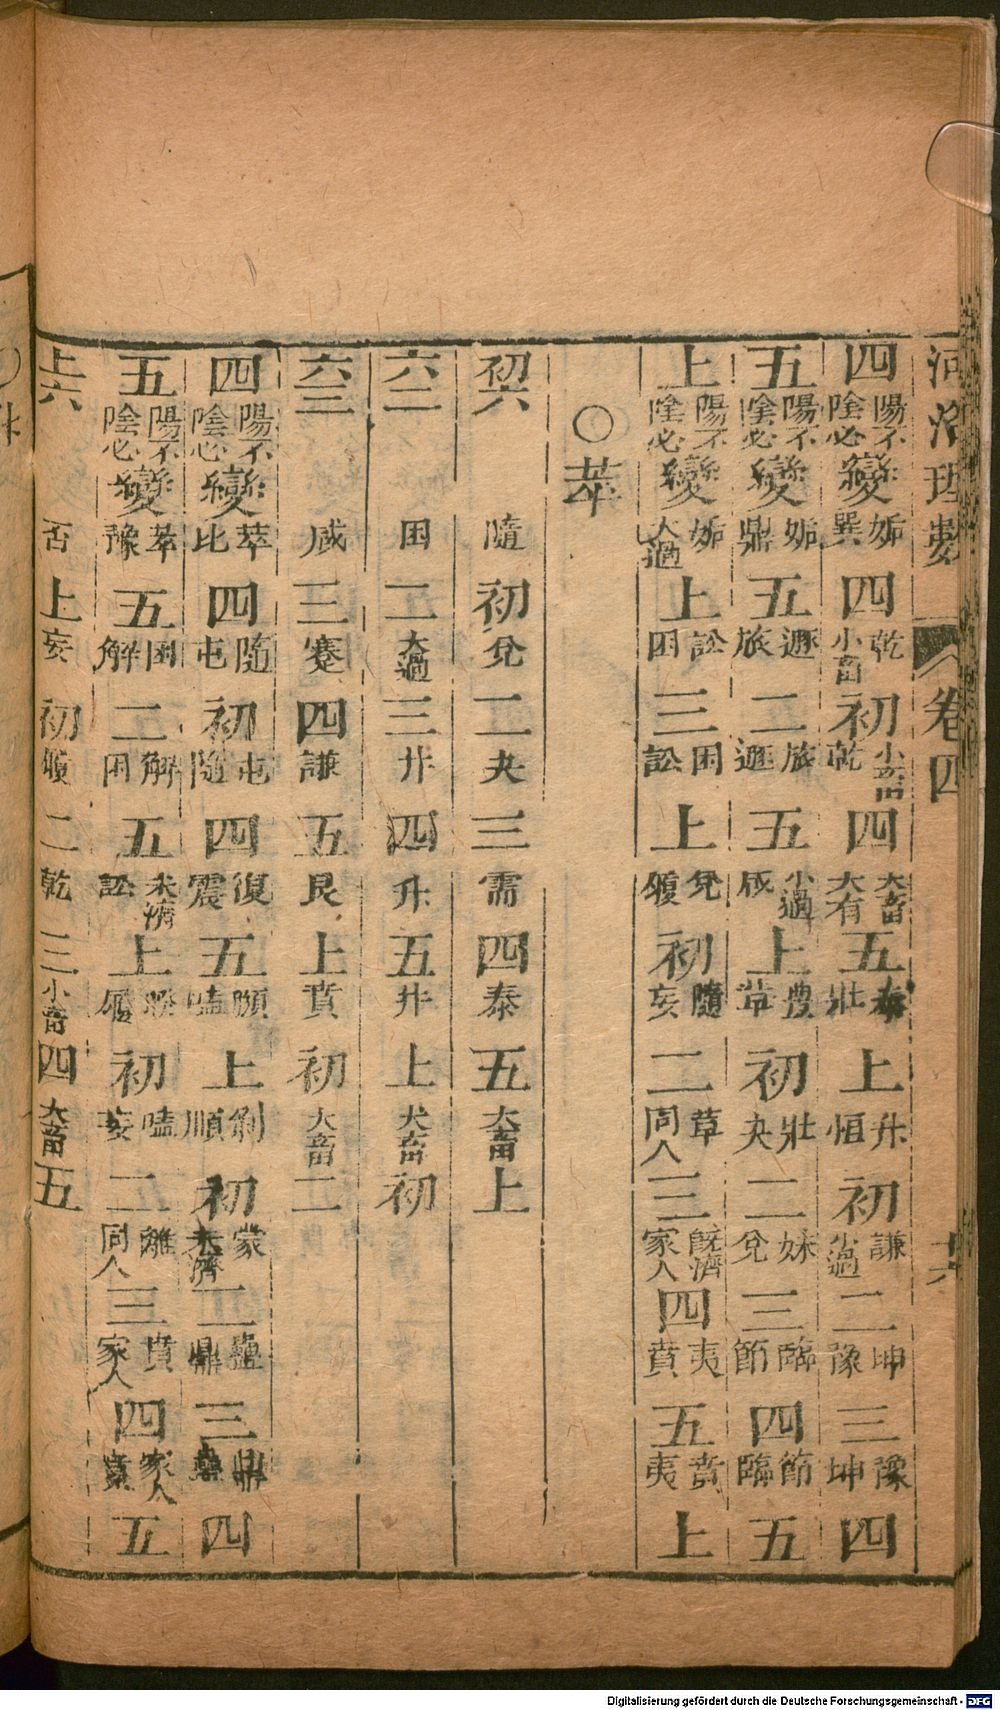 河洛理數 卷四
四 陽不陰必 變 姤巽 四 乾小畜 初 小畜乾 四 大畜大有 五 泰壯 上 升恒 初 謙小過 二 坤豫 三 豫坤 四
五 陽不陰必 變 姤鼎 五 遯旅 二 旅遯 五 小過咸 上 豊革 初 壯夬 二 妹兌 三 臨節 四 節臨 五
上 陽不陰必 變 姤大過 上 訟困 三 困訟 上 兌履 初 隨妄 二 革同人 三 旣濟家人 四 夷賁 五 賁夷 上
○萃
初六 隨 初 兌 二 夬 三 需 四 泰 五 大畜 上
六二 困 二 大過 三 井 四 升 五 井 上 大畜 初
六三 咸 三 蹇 四 謙 五 艮 上 賁 初 大畜 二
四 陽不陰必 變 萃比 四 隨屯 初 屯隨 四 復震 五 頤嗑 上 剝順 初 蒙未濟 二 蠱鼎 三 鼎蠱 四
五 陽不陰必 變 萃豫 五 困解 二 解困 五 未濟訟 上 睽履 初 嗑妄 二 離同人 三 賁家人 四 家人賁 五
上六 否 上 妄 初 履 二 乾 三 小畜 四 大畜 五
Digitalisierung gefördert durch die Deutsche Forschungsgemeinschaft - DFG